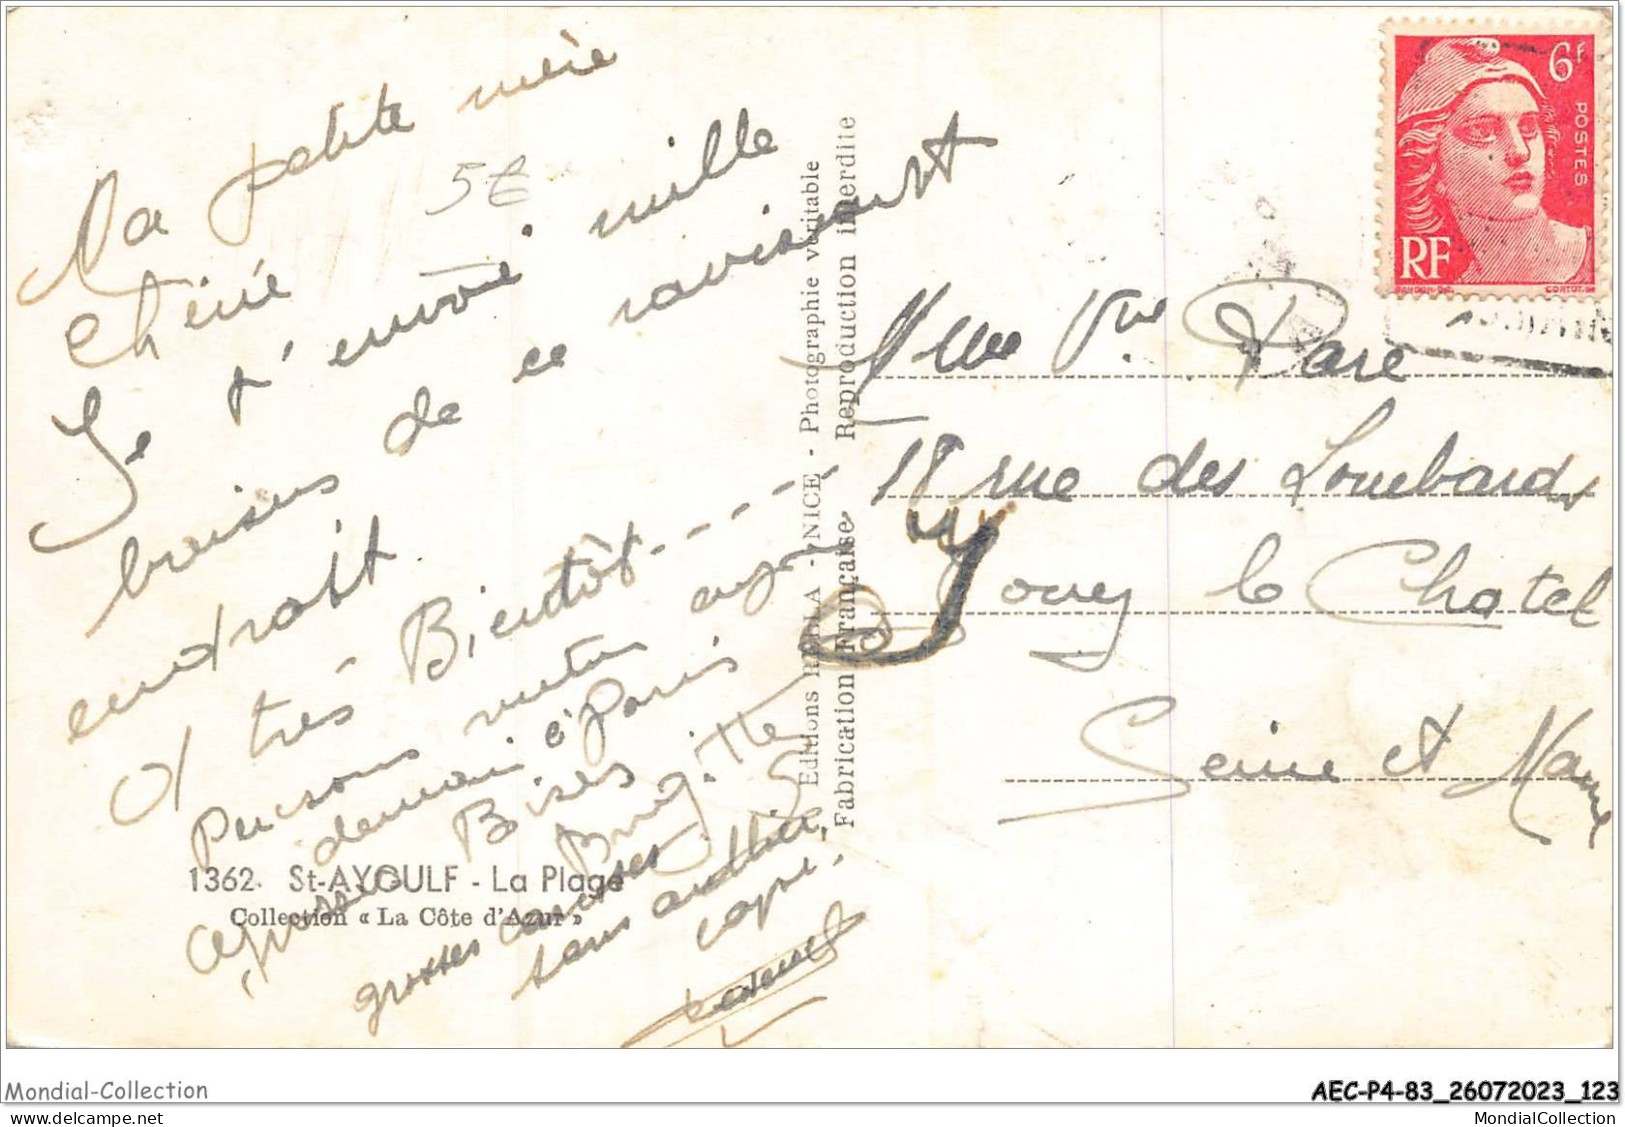 Ma petite mère
Chérie
Je t'envoie mille
baisers de ce ravissant
endroit.
A très Bientôt
Pensons
demain à Paris
Bises
Brigitte
grosses caresses
sans oublier
1362. St-AYGULF - La Plage
Collection « La Côte d'Azur »
5€
Editions RELLA - NICE - Photographie véritable
Fabrication Française - Reproduction interdite
6F
POSTES
RF
Mme Vve Paré
18 rue des Lombards
Jouy le Chatel
Seine et Marne
Mondial-Collection
AEC-P4-83_26072023_123
MondialCollection